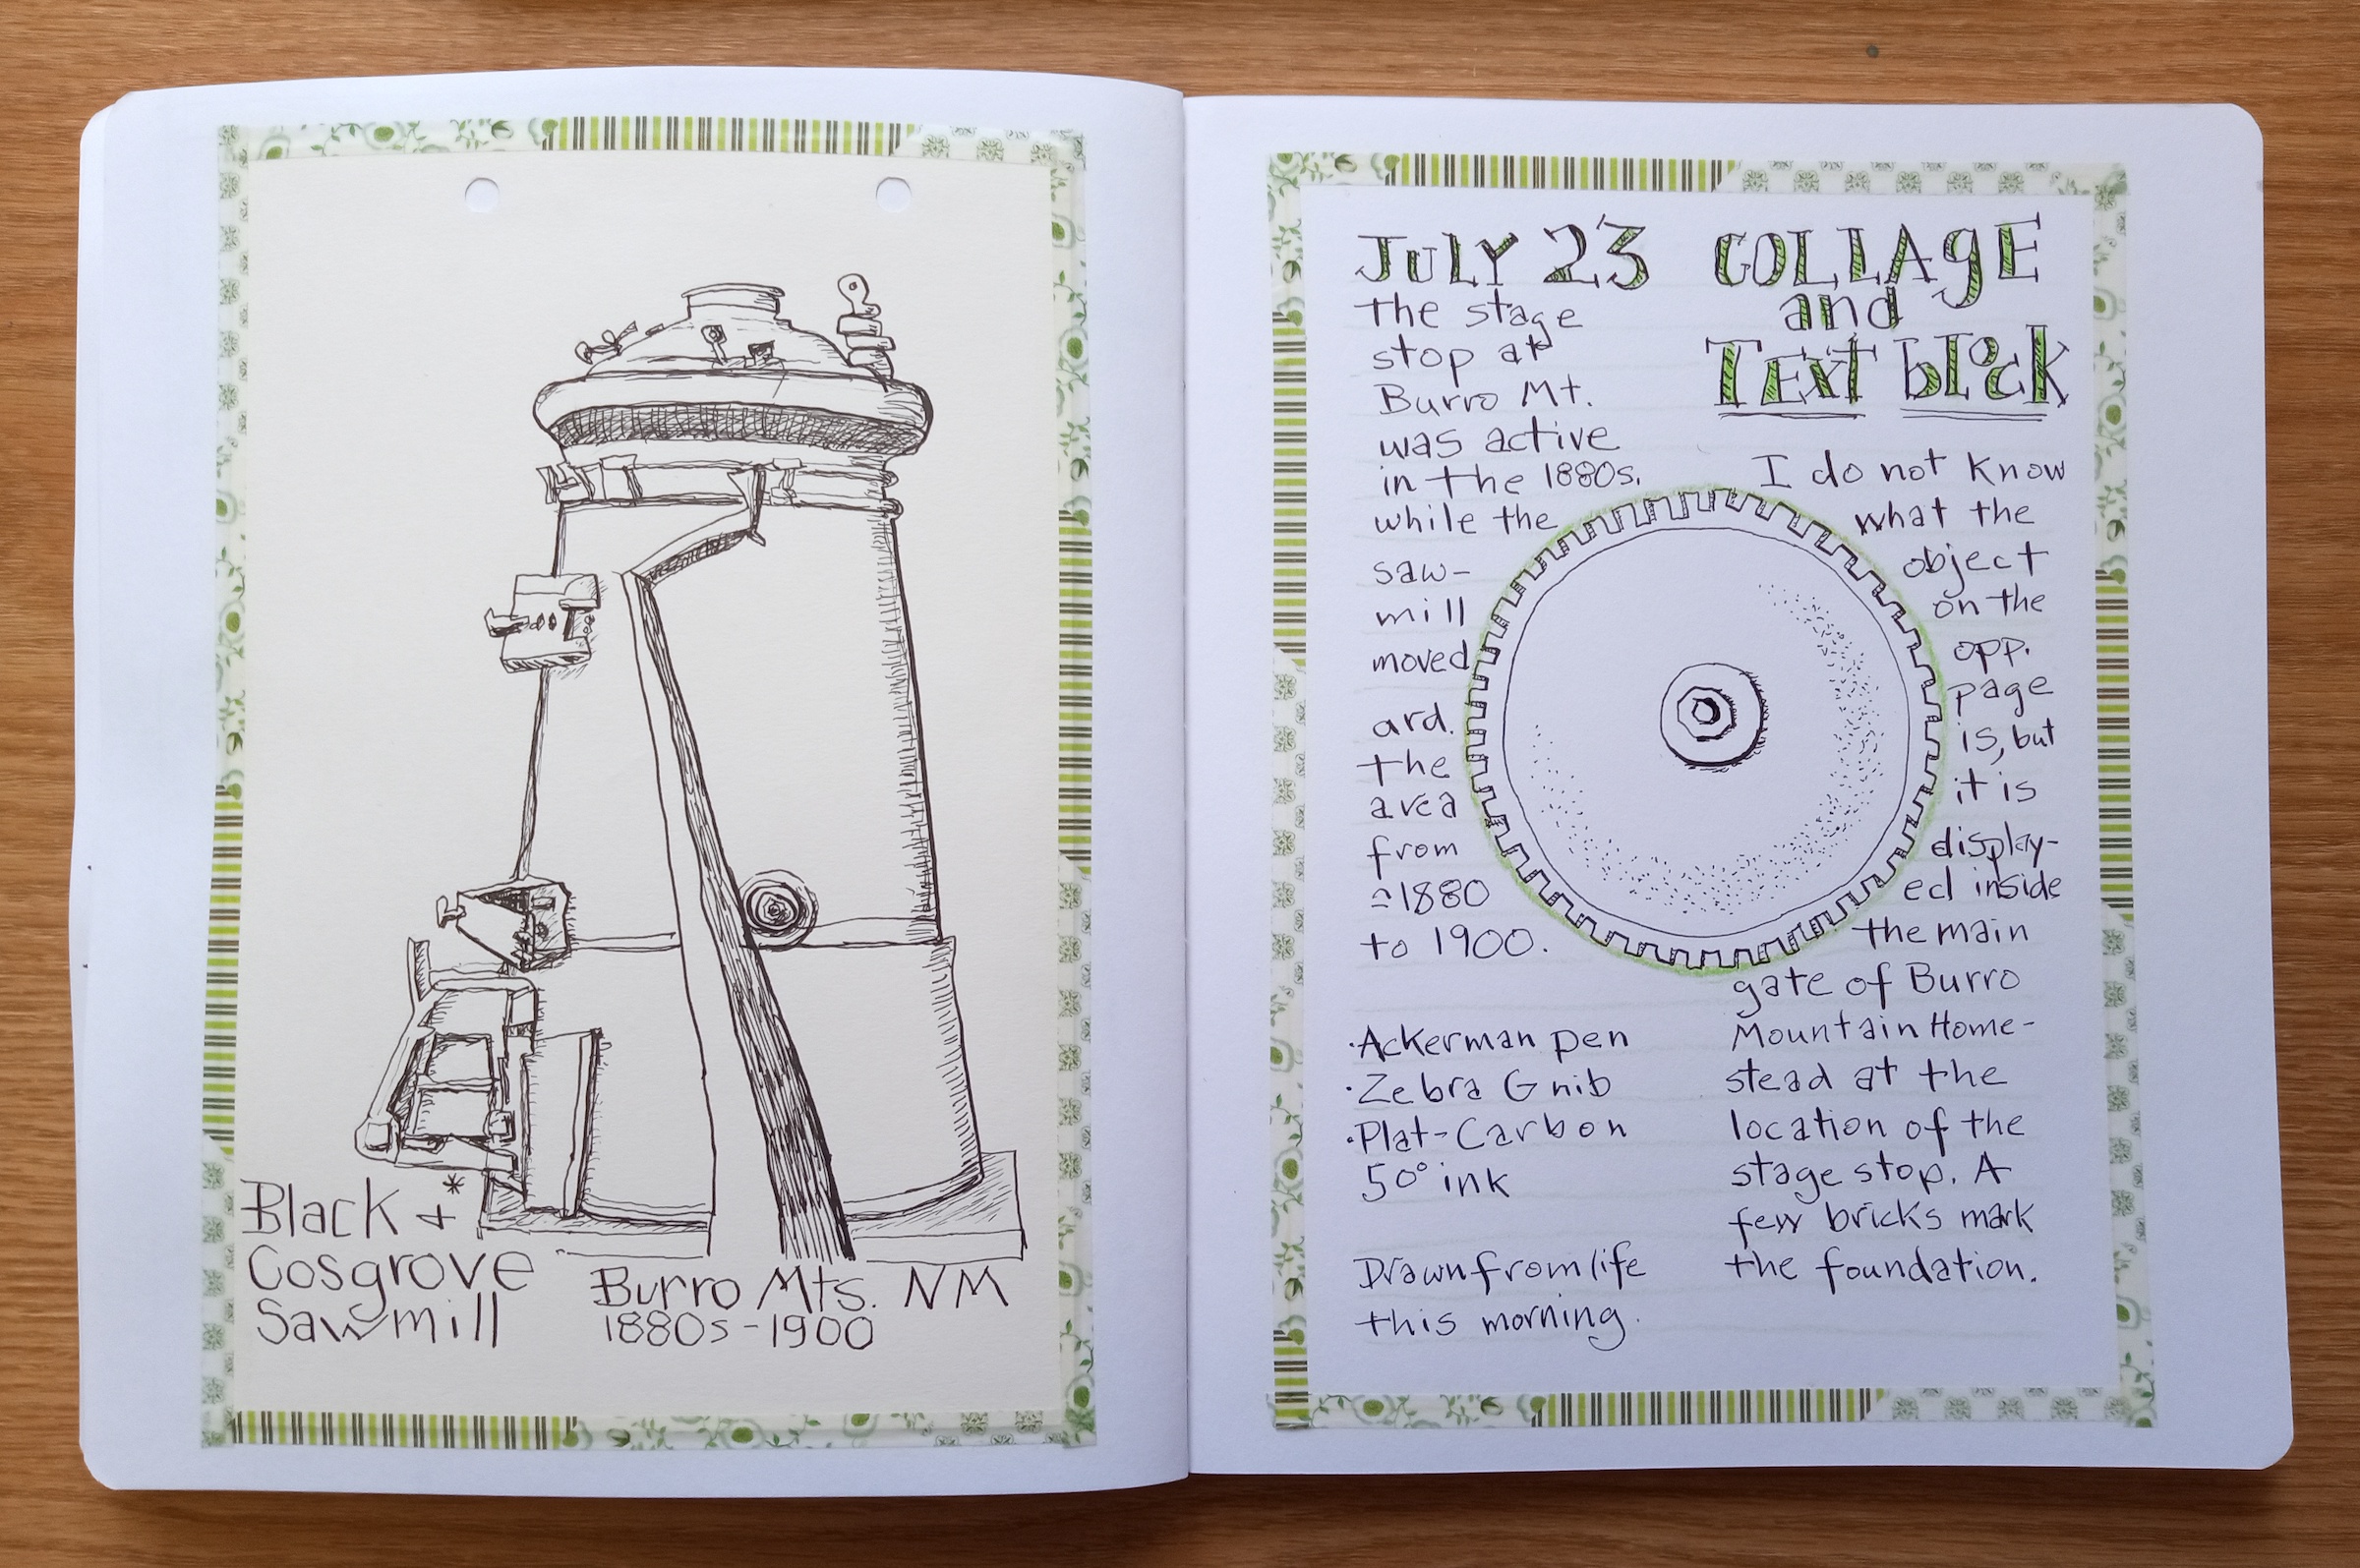 Black & *
Cosgrove
Sawmill
Burro Mts. NM
1880s-1900
JULY 23
the stage
stop at
Burro Mt.
was active
in the 1880s.
while the
saw-
mill
moved
ard.
the
area
from
≃1880
to 1900.
•Ackerman pen
•Zebra G nib
•Plat-Carbon
50° ink
Drawn from life
this morning.
COLLAgE
and
TExT block
I do not know
what the
object
on the
opp.
page
is, but
it is
display-
ed inside
the main
gate of Burro
Mountain Home-
stead at the
location of the
stage stop. A
few bricks mark
the foundation.